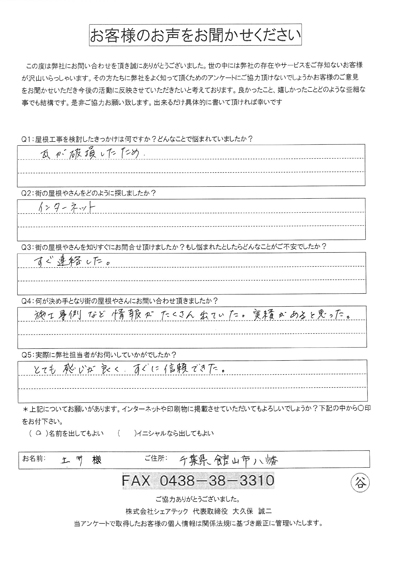 お客様のお声をお聞かせください
この度は弊社にお問い合わせを頂き誠にありがとうございました。世の中には弊社の存在やサービスをご存知ないお客様
が沢山いらっしゃいます。その方たちに弊社をよく知って頂くためのアンケートにご協力頂けないでしょうかお客様のご意見
をお聞かせいただき今後の活動に反映させていただきたいと考えております。良かったこと、嬉しかったことどのような些細な
事でも結構です。是非ご協力お願い致します。出来るだけ具体的に書いて頂ければ幸いです
Q1:屋根工事を検討したきっかけは何ですか?どんなことで悩まれていましたか?
瓦が破損したため
Q2:街の屋根やさんをどのように探しましたか?
インターネット
Q3:街の屋根やさんを知りすぐにお問合せ頂けましたか?もし悩まれたとしたらどんなことがご不安でしたか?
すぐ連絡した。
Q4:何が決め手となり街の屋根やさんにお問い合わせ頂きましたか?
施工事例など情報がたくさん出ていた。実績があると思った。
Q5:実際に弊社担当者がお伺いしていかがでしたか?
とても感じが良く、すぐに信頼できた。
*上記についてお願いがあります。インターネットや印刷物に掲載させていただいてもよろしいでしょうか?下記の中から〇印
をお付下さい。
(○)名前を出してもよい ( )イニシャルなら出してもよい
お名前: 様 ご住所: 千葉県館山市八幡
FAX 0438-38-3310
谷
ご協力ありがとうございました。
株式会社シェアテック 代表取締役 大久保 誠二
当アンケートで取得したお客様の個人情報は関係法規に基づき厳正に管理いたします。